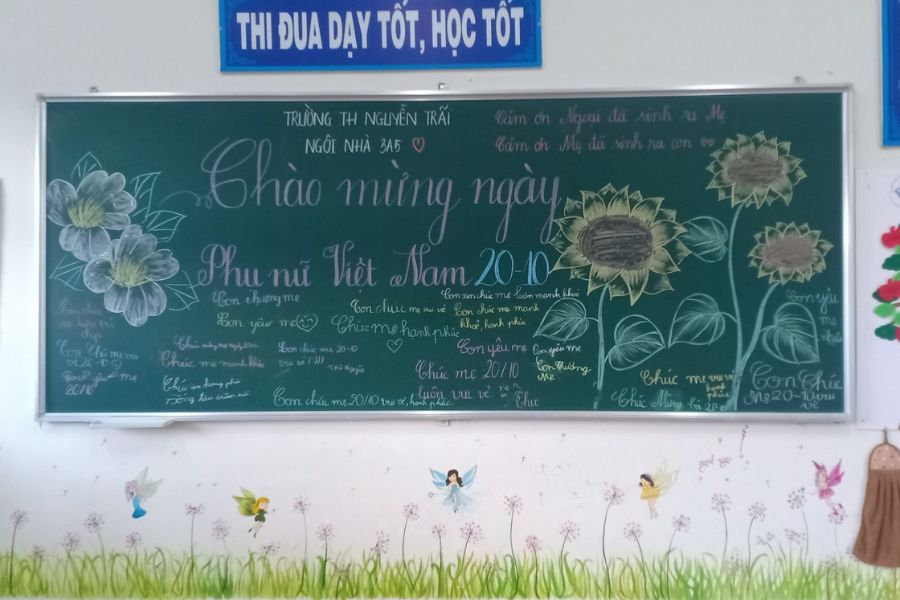 THI ĐUA DẠY TỐT, HỌC TỐT
TRƯỜNG TH NGUYỄN TRÃI
NGÔI NHÀ 3A5
Cảm ơn Ngoại đã sinh ra Mẹ
Cảm ơn Mẹ đã sinh ra con
Chào mừng ngày
Phụ nữ Việt Nam 20-10
Con thương mẹ
Con yêu mẹ
Con chúc mẹ vui vẻ
Chúc mẹ hạnh phúc
Con xin chúc mẹ luôn mạnh khoẻ
Con chúc mẹ mạnh
khoẻ, hạnh phúc
Con yêu
mẹ
Chúc mẹ mạnh khoẻ
Con chúc mẹ 20-10
vui vẻ
Con yêu mẹ
Con yêu mẹ
Con thương
mẹ
Chúc mẹ 20/10
luôn vui vẻ
Con chúc mẹ 20/10 vui vẻ, hạnh phúc
Chúc mẹ vui vẻ
hạnh
phúc
Chúc Mừng
Con Chúc
Mẹ 20-10 vui
vẻ
20/10